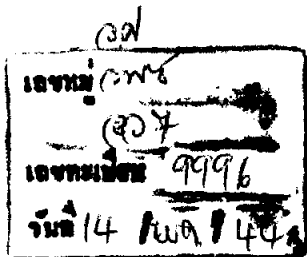 วส
เลขหมู่ วพ
ว 7
เลขทะเบียน 9996
วันที่ 14 / พค / 44